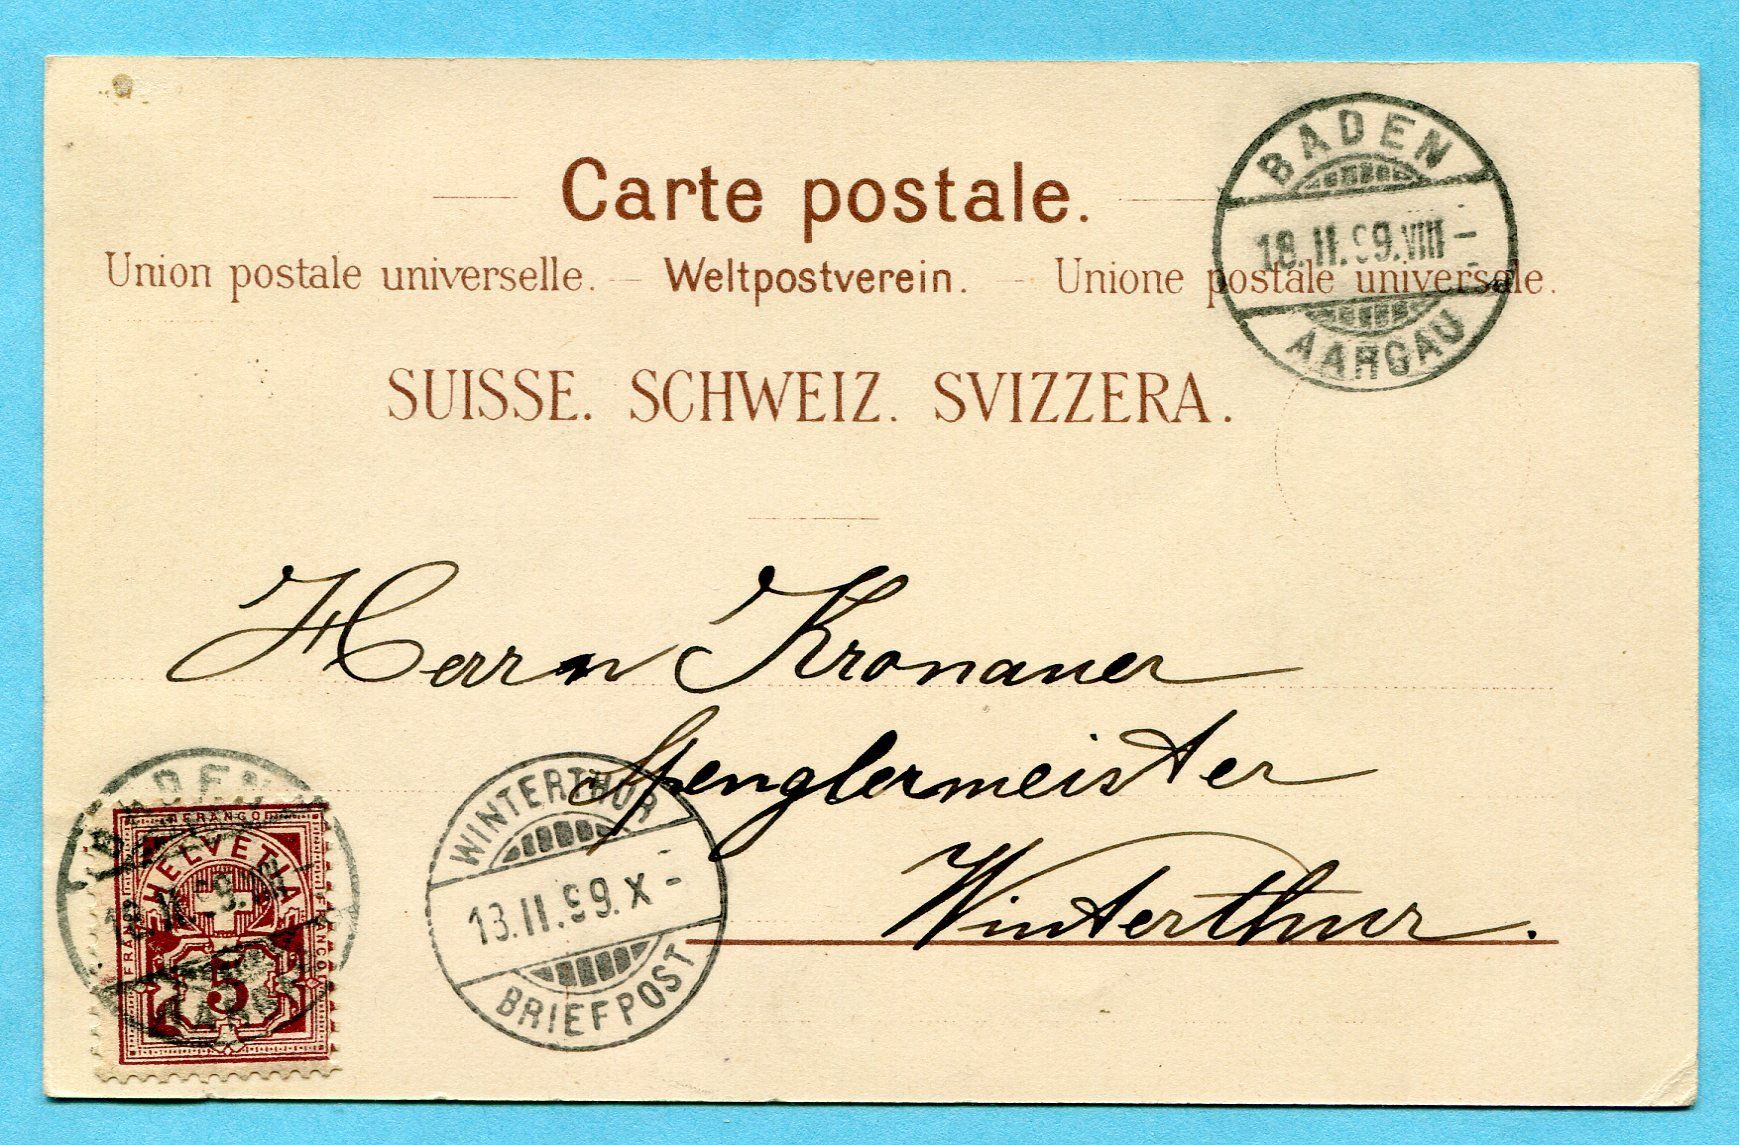 Carte postale.
Union postale universelle. — Weltpostverein. — Unione postale universale.
SUISSE. SCHWEIZ. SVIZZERA.
BADEN
18.II.99.VIII–
AARGAU
Herrn Kronauer
Spenglermeister
Winterthur.
WINTERTHUR
13.II.99.X–
BRIEFPOST
BADEN
FRANCO
HELVETIA
FRANCO
FRANCO
5